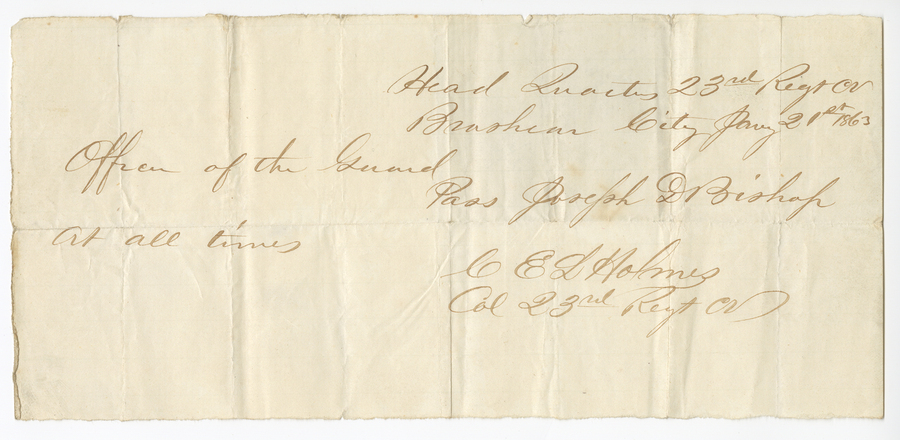 Head Quarters 23rd Regt CV
Brashear City Jany 21st 1863
Officer of the Guard
Pass Joseph D Bishop
at all times
C E L Holmes
Col 23rd Regt CV